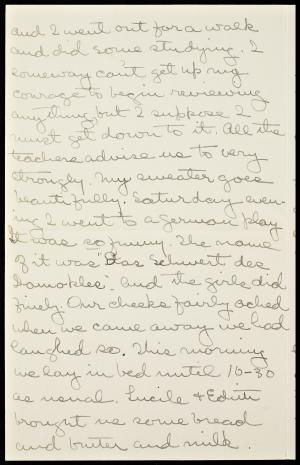 and I went out for a walk
and did some studying. I
someway can't get up my
courage to begin reviewing
anything but I suppose I
must get down to it. All the
teachers advise us to very
strongly. My sweater goes
beautifully. Saturday even-
ing I went to a German play
It was so funny. The name
of it was "Das Schwert des
Damokles. And the girls did
finely. Our cheeks fairly ached
when we came away we had
laughed so. This morning
we lay in bed until 10-30
as usual. Lucile & Edith
brought us some bread
and butter and milk.